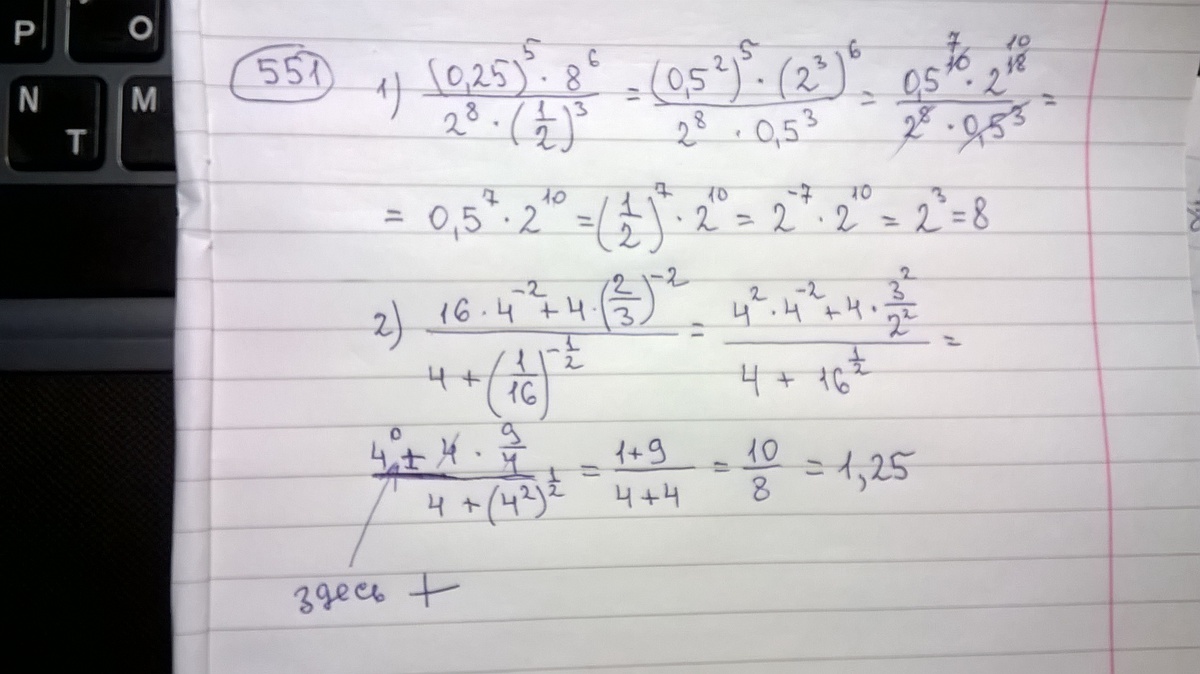 P O
N M
T
551 1) (0,25)⁵ · 8⁶ / 2⁸ · (1/2)³ = (0,5²)⁵ · (2³)⁶ / 2⁸ · 0,5³ = 0,5¹⁰ ⁷ · 2¹⁸ ¹⁰ / 2⁸ · 0,5³ =
= 0,5⁷ · 2¹⁰ = (1/2)⁷ · 2¹⁰ = 2⁻⁷ · 2¹⁰ = 2³ = 8
2) 16 · 4⁻² + 4 · (2/3)⁻² / 4 + (1/16)^(-1/2) = 4² · 4⁻² + 4 · 3²/2² / 4 + 16^(1/2) =
4⁰ + 4 · 9/4 / 4 + (4²)^(1/2) = 1+9 / 4+4 = 10/8 = 1,25
здесь +